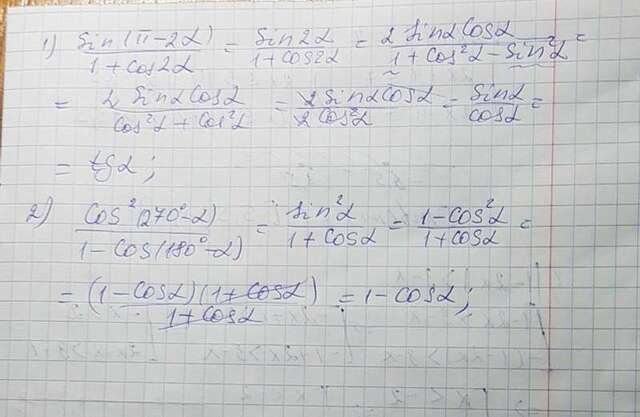 1) sin(π-2α)/(1+cos2α) = sin2α/(1+cos2α) = 2sinαcosα/(1+cos²α-sin²α) =
= 2sinαcosα/(cos²α+cos²α) = 2sinαcosα/(2cos²α) = sinα/cosα =
= tgα;
2) cos²(270°-α)/(1-cos(180°-α)) = sin²α/(1+cosα) = (1-cos²α)/(1+cosα) =
= (1-cosα)(1+cosα)/(1+cosα) = 1-cosα;